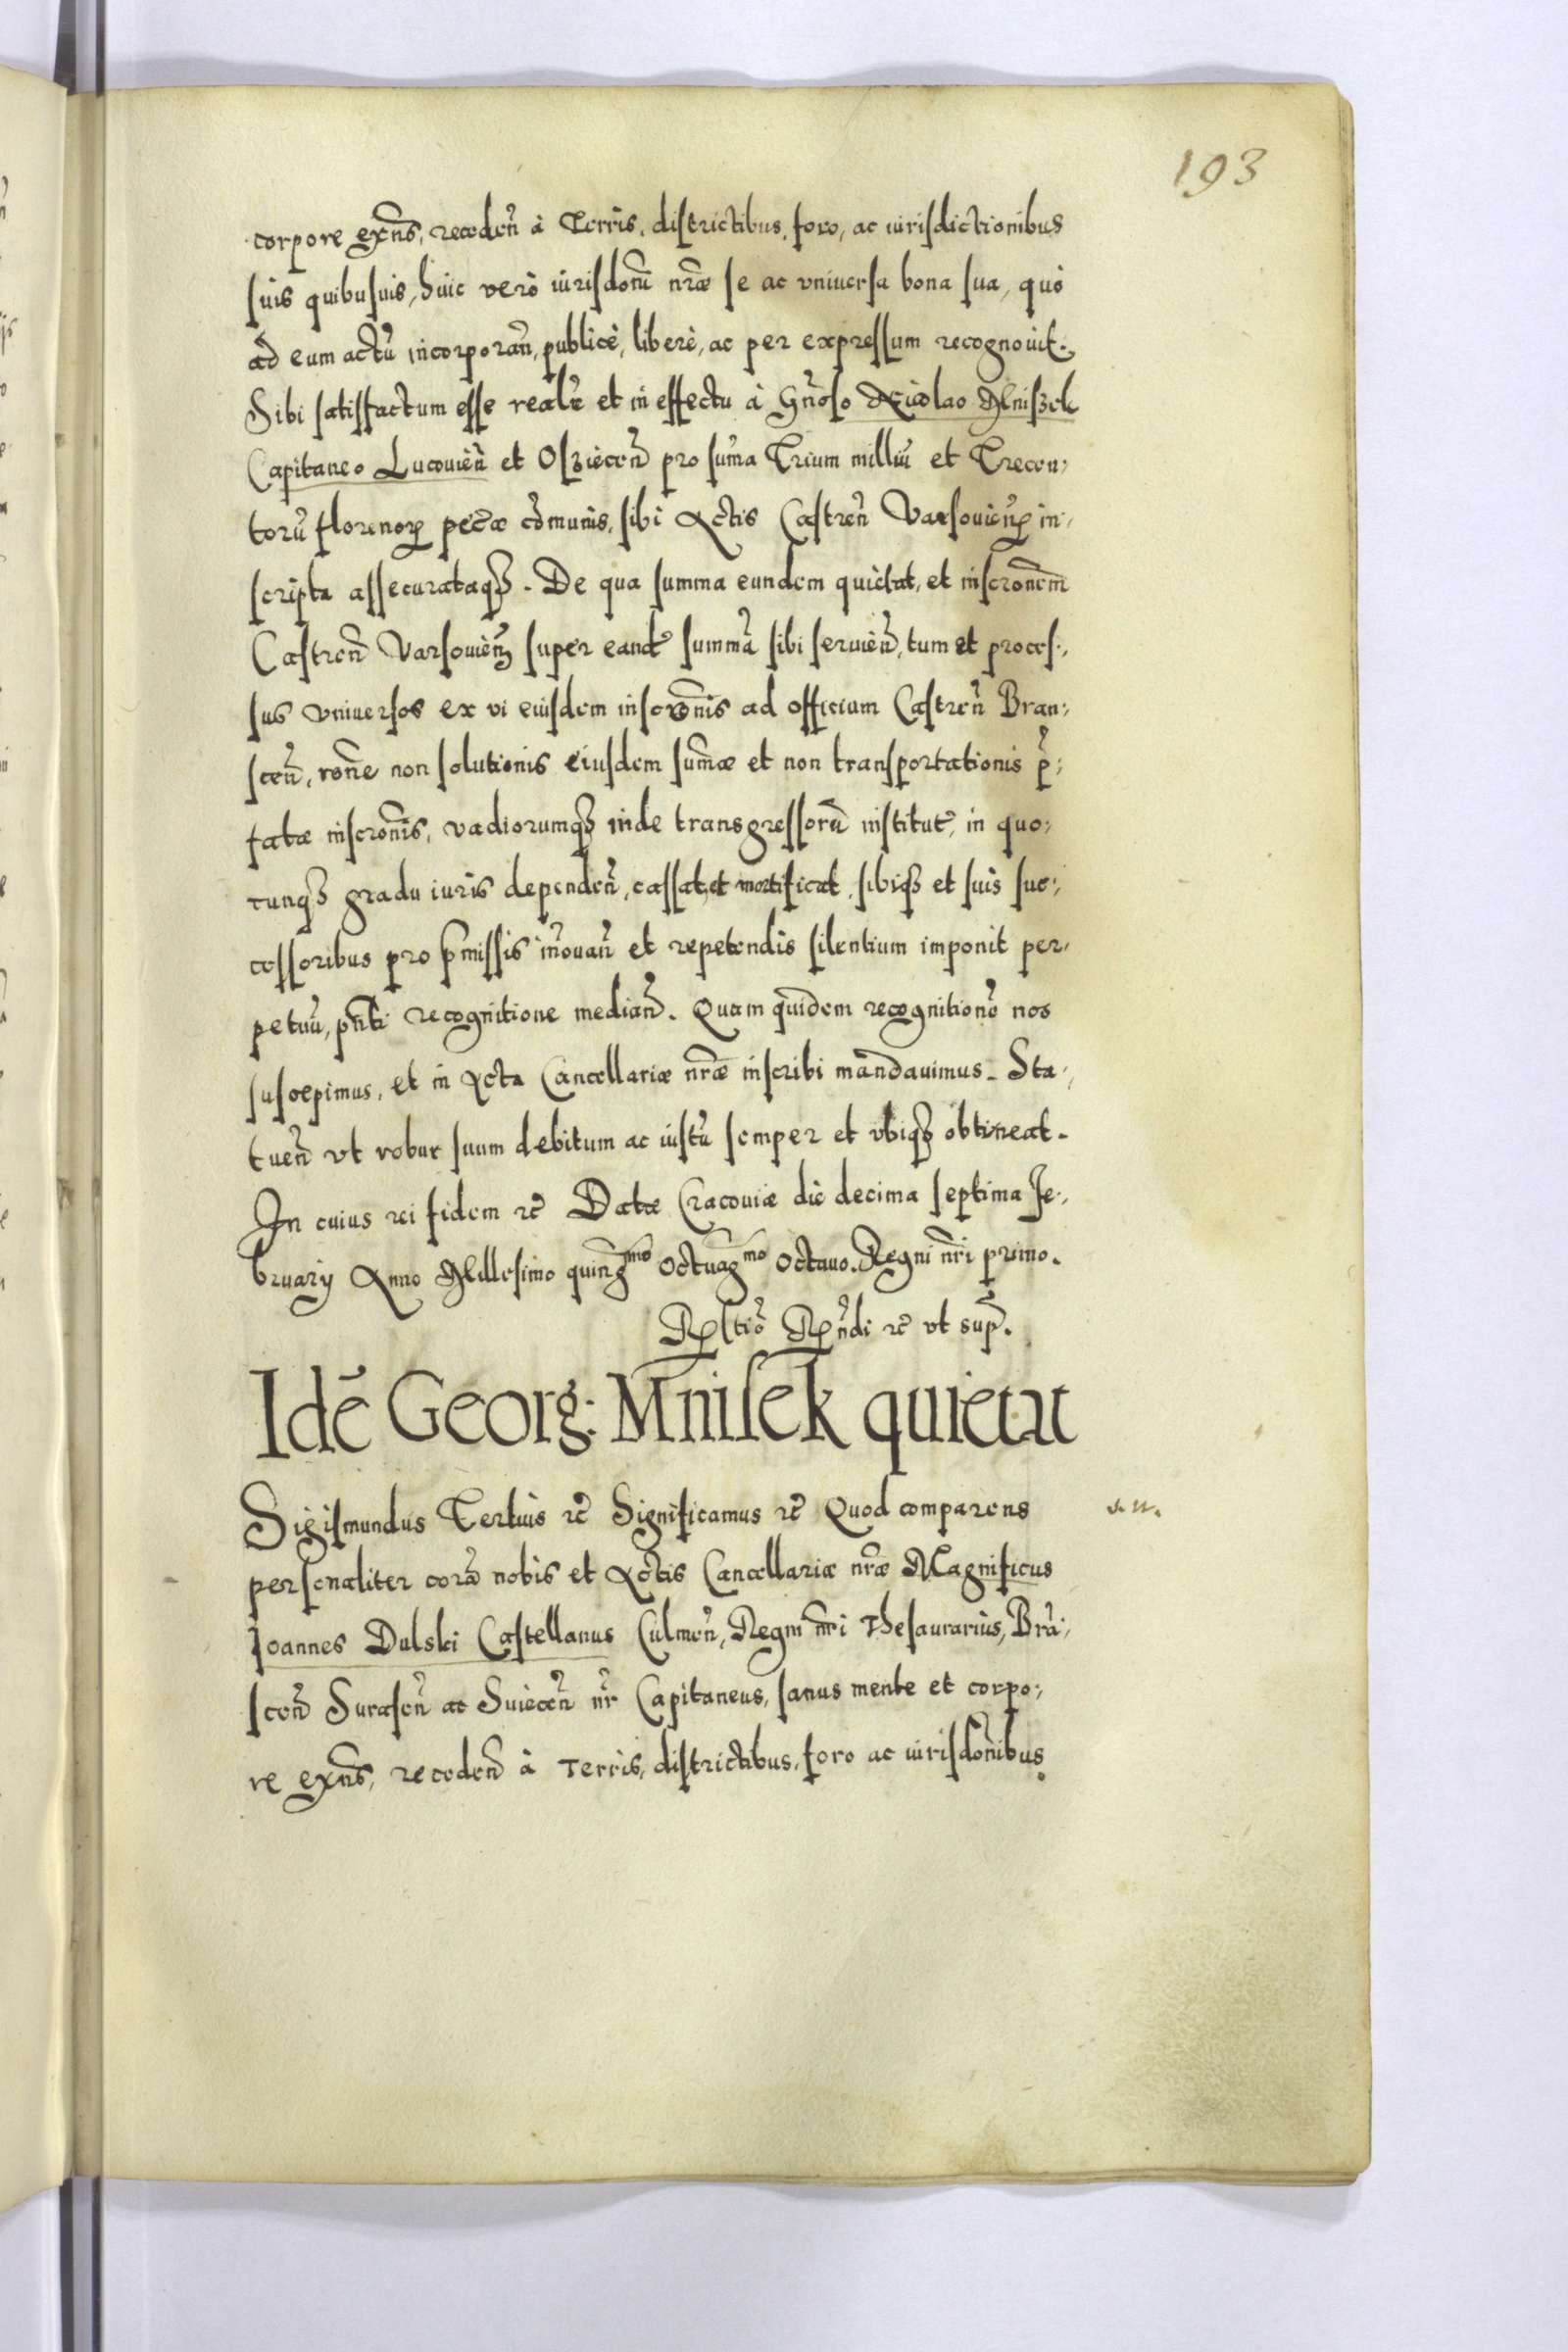 193
corpore exñs, recedeñ à Terris, districtibus, foro, ac iurisdictionibus
suis quibusuis, huic verò iurisdonũ nræ se ac vniuersa bona sua, quò
ad eum actũ incorporañ, publicè, liberè, ac per expressum recognouit.
Sibi satisfactum esse realr̃ et in effectu à Gñoso Nicolao Mniszek
Capitaneo Lucouieñ et Oszieceñ pro sum̃a Trium milliũ et Trecen,
torũ florenoꝝ pec̃æ cõmunis, sibi Actis Castreñ Varsouieñ in,
scripta assecurataqꝫ. De qua summa eundem quietat, et inscronem̃
Castreñ Varsouieñ super eand̃ summã sibi seruieñ, tum et proces,
sus vniuersos ex vi eiusdem inscronis̃ ad officium Castreñ Bran,
sceñ, rõne non solutionis eiusdem sum̃æ et non transportationis p̃,
fatæ inscronis̃, vadiorumqꝫ inde transgressorũ institut̃, in quo,
cunqꝫ gradu iuris dependeñ, cassat, et mortificat, sibiqꝫ et suis suc,
cessoribus pro p̃missis iñouañ et repetendis silentium imponit per,
petuũ, pñti recognitione mediañ. Quam quidem recognitionẽ nos
suscepimus, et in Acta Cancellariæ nræ inscribi mandauimus. Sta,
tueñ vt robur suum debitum ac iustũ semper et vbiqꝫ obtineat.
In cuius rei fidem ꝛc̃ Datæ Cracouiæ die decima septima Fe,
bruarij Anno Millesimo quingᵐᵒ Octuagᵐᵒ Octauo. Regni nr̃i primo.
Rꝑltiõ Rꝑñdi ꝛc̃ vt sup̃.
Idẽ Georg: Mnisek quietat
Sigismundus Tertius ꝛc̃ Significamus ꝛc̃ Quod comparens
personaliter corã nobis et Actis Cancellariæ nræ Magnificus
Ioannes Dulski Castellanus Culmeñ, Regni nr̃i Thesaurarius, Brã,
sceñ Suraseñ ac Suieceñ nr̃ Capitaneus, sanus mente et corpo,
re exñs, recedeñ à Terris, districtibus, foro ac iurisdonibus̃